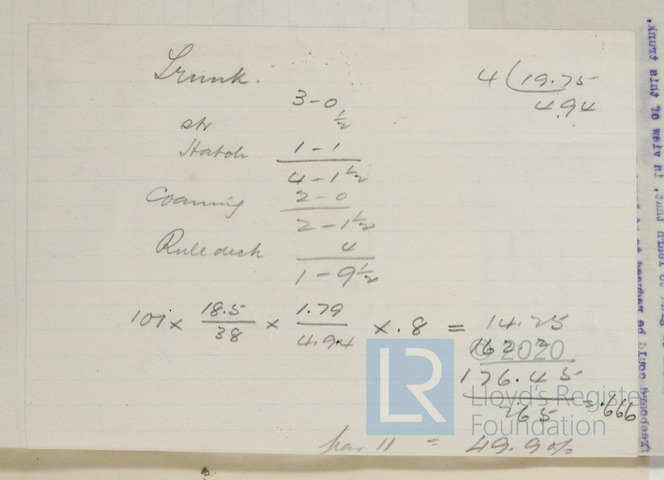 Trunk.
4 ( 19.75
4.94
3 - 0
str ½
Hatch 1 - 1
4 - 1½
Coaming 2 - 0
2 - 1½
Rule deck 4
1 - 9½
101 × 18.5/38 × 1.79/4.94 × .8 = 14.25
162.2
176.45
265 = .666
par 11 = 49.9%
© 2020
LR
Lloyd's Register
Foundation